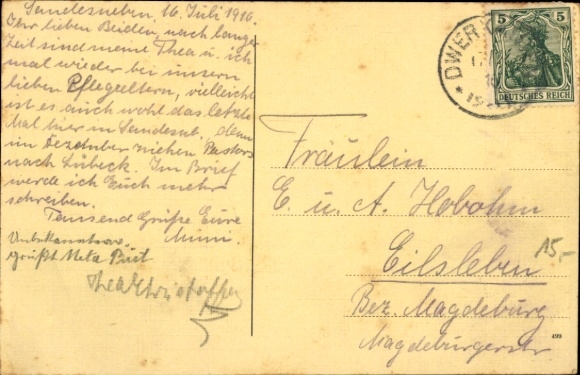 Sandesneben, 16. Juli 1916.
Ihr lieben Beiden, nach langer
Zeit sind meine Thea u. ich
mal wieder bei unsern
lieben Pflegeeltern, vielleicht
ist es auch wohl das letzte
Mal hier in Sandesneb. denn
im Dezember ziehen Pastors
nach Lübeck. Im Brief
werde ich Euch mehr
schreiben.
Tausend Grüße Eure
Mimi.
Unbekannterw.
grüßt Meta
Thea
5
5
DEUTSCHES REICH
DWER
Fräulein
E. u. A. Hobohm
Eilsleben
Bez. Magdeburg
Magdeburgerstr
15-